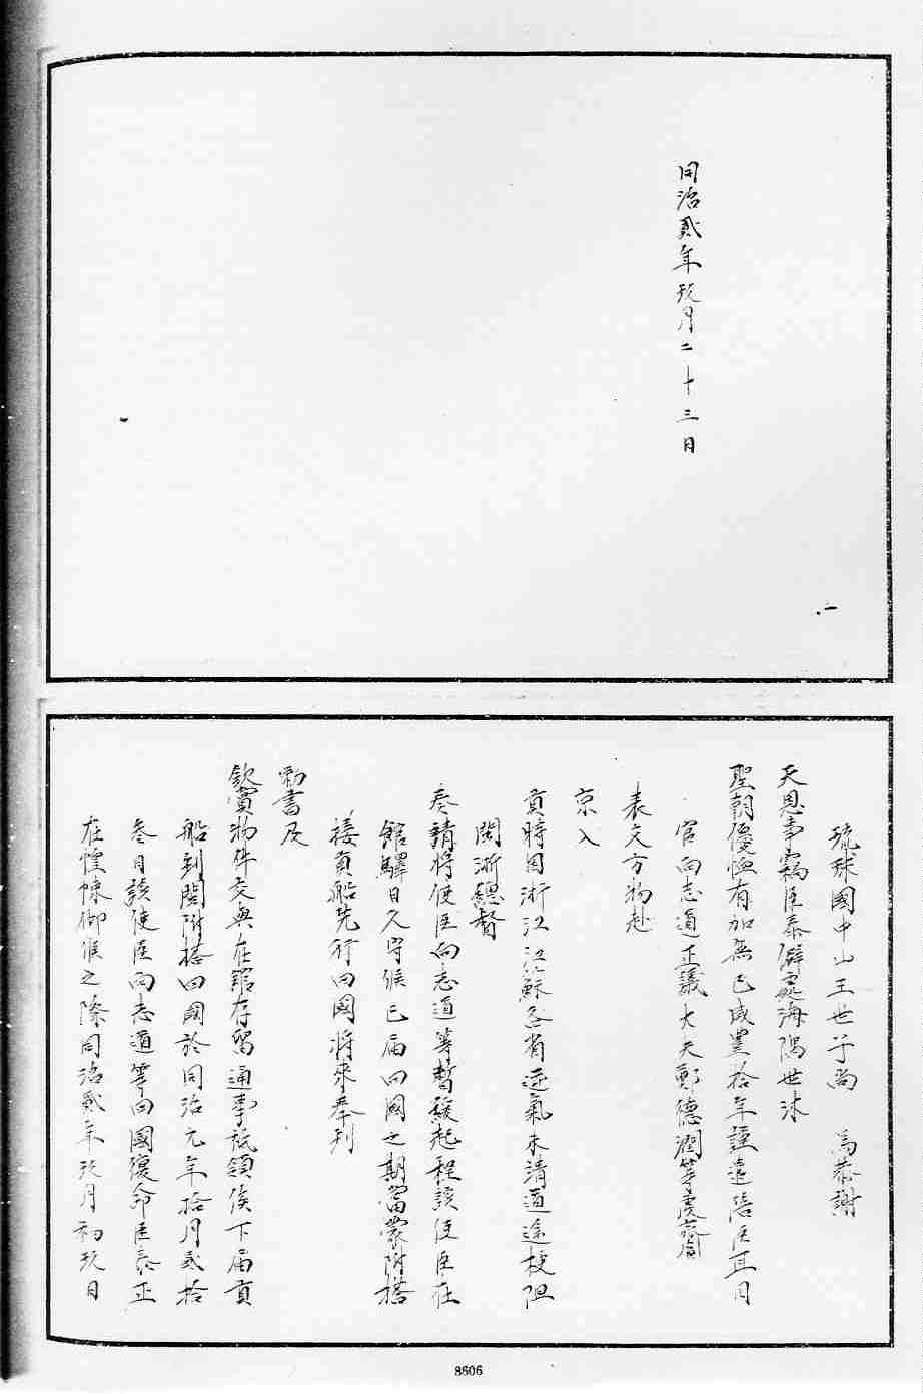 同治貳年玖月二十三日
琉球國中山王世子尚 為恭謝
天恩事竊臣泰僻處海隅世沐
聖朝優恤有加無已咸豐拾年謹遣陪臣耳目
官向志道正議大夫鄭德潤等虔齎
表文方物赴
京入
貢時因浙江江蘇各省逆氣未清道途梗阻
閩浙總督
奏請將使臣向志道等暫緩起程該使臣在
館驛日久守候已屆回國之期當蒙附搭
接貢船先行回國將來奉到
勅書及
欽賞物件交與在館存留通事祗領俟下屆貢
船到閩附搭回國於同治元年拾月貳拾
叁日該使臣向志道等回國復命臣泰正
在惶悚御候之際同治貳年玖月初玖日
8606